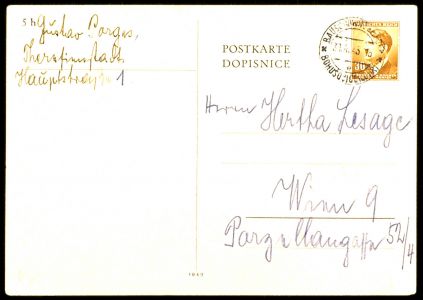 5 h
Gustav Porges,
Theresienstadt,
Hauptstraße 1
POSTKARTE
DOPISNICE
Herrn Hertha Lesage
Wien 9
Porzellangasse 52/4